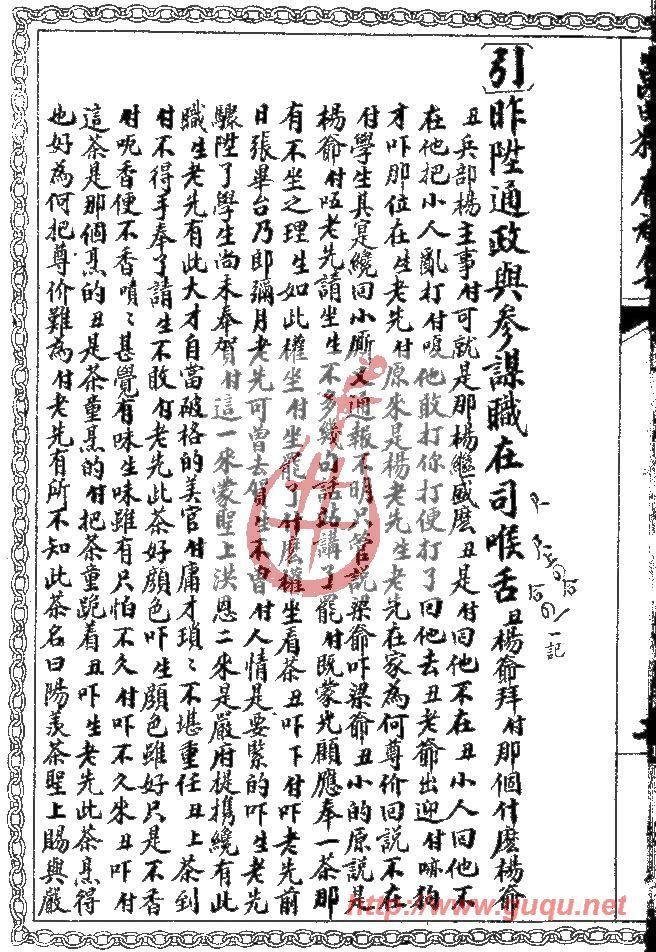 引 昨陞通政與參謀職在司喉舌 丑楊爺拜付那個什麽楊爺
丑兵部楊主事付可就是那楊繼盛麽丑是付回他不在丑小人回他不
在他把小人亂打付嗄他敢打你打便打了回他去丑老爺出迎付嘛狗
才吓那位在生老先付原來是楊老先生老先在家為何尊价回説不在
付學生其是纔回小厮又通報不明只管説梁爺吓梁爺丑小的原説是
楊爺付唔老先請坐生不多幾句話站講了罷付既蒙光顧應奉一茶那
有不坐之理生如此權坐付坐罷了什麽權坐看茶丑吓下付吓老先前
日張畢台乃郎彌月老先可曾去賀生不曾付人情是要緊的吓生老先
驟陞了學生尚未奉賀付這一來蒙聖上洪恩二來是嚴府提携纔有此
職生老先有此大才自當破格的美官付庸才瑣〻不堪重任丑上茶到
付不得手奉了請生不敢付老先此茶好顔色吓生顔色雖好只是不香
付呃香便不香嘖〻甚覺有味生味雖有只怕不久付吓不久來丑吓付
這茶是那個烹的丑是茶童烹的付把茶童跪着丑吓生老先此茶烹得
也好為何把尊价難為付老先有所不知此茶名曰陽羨茶聖上賜與嚴
一記
http://www.guqu.net